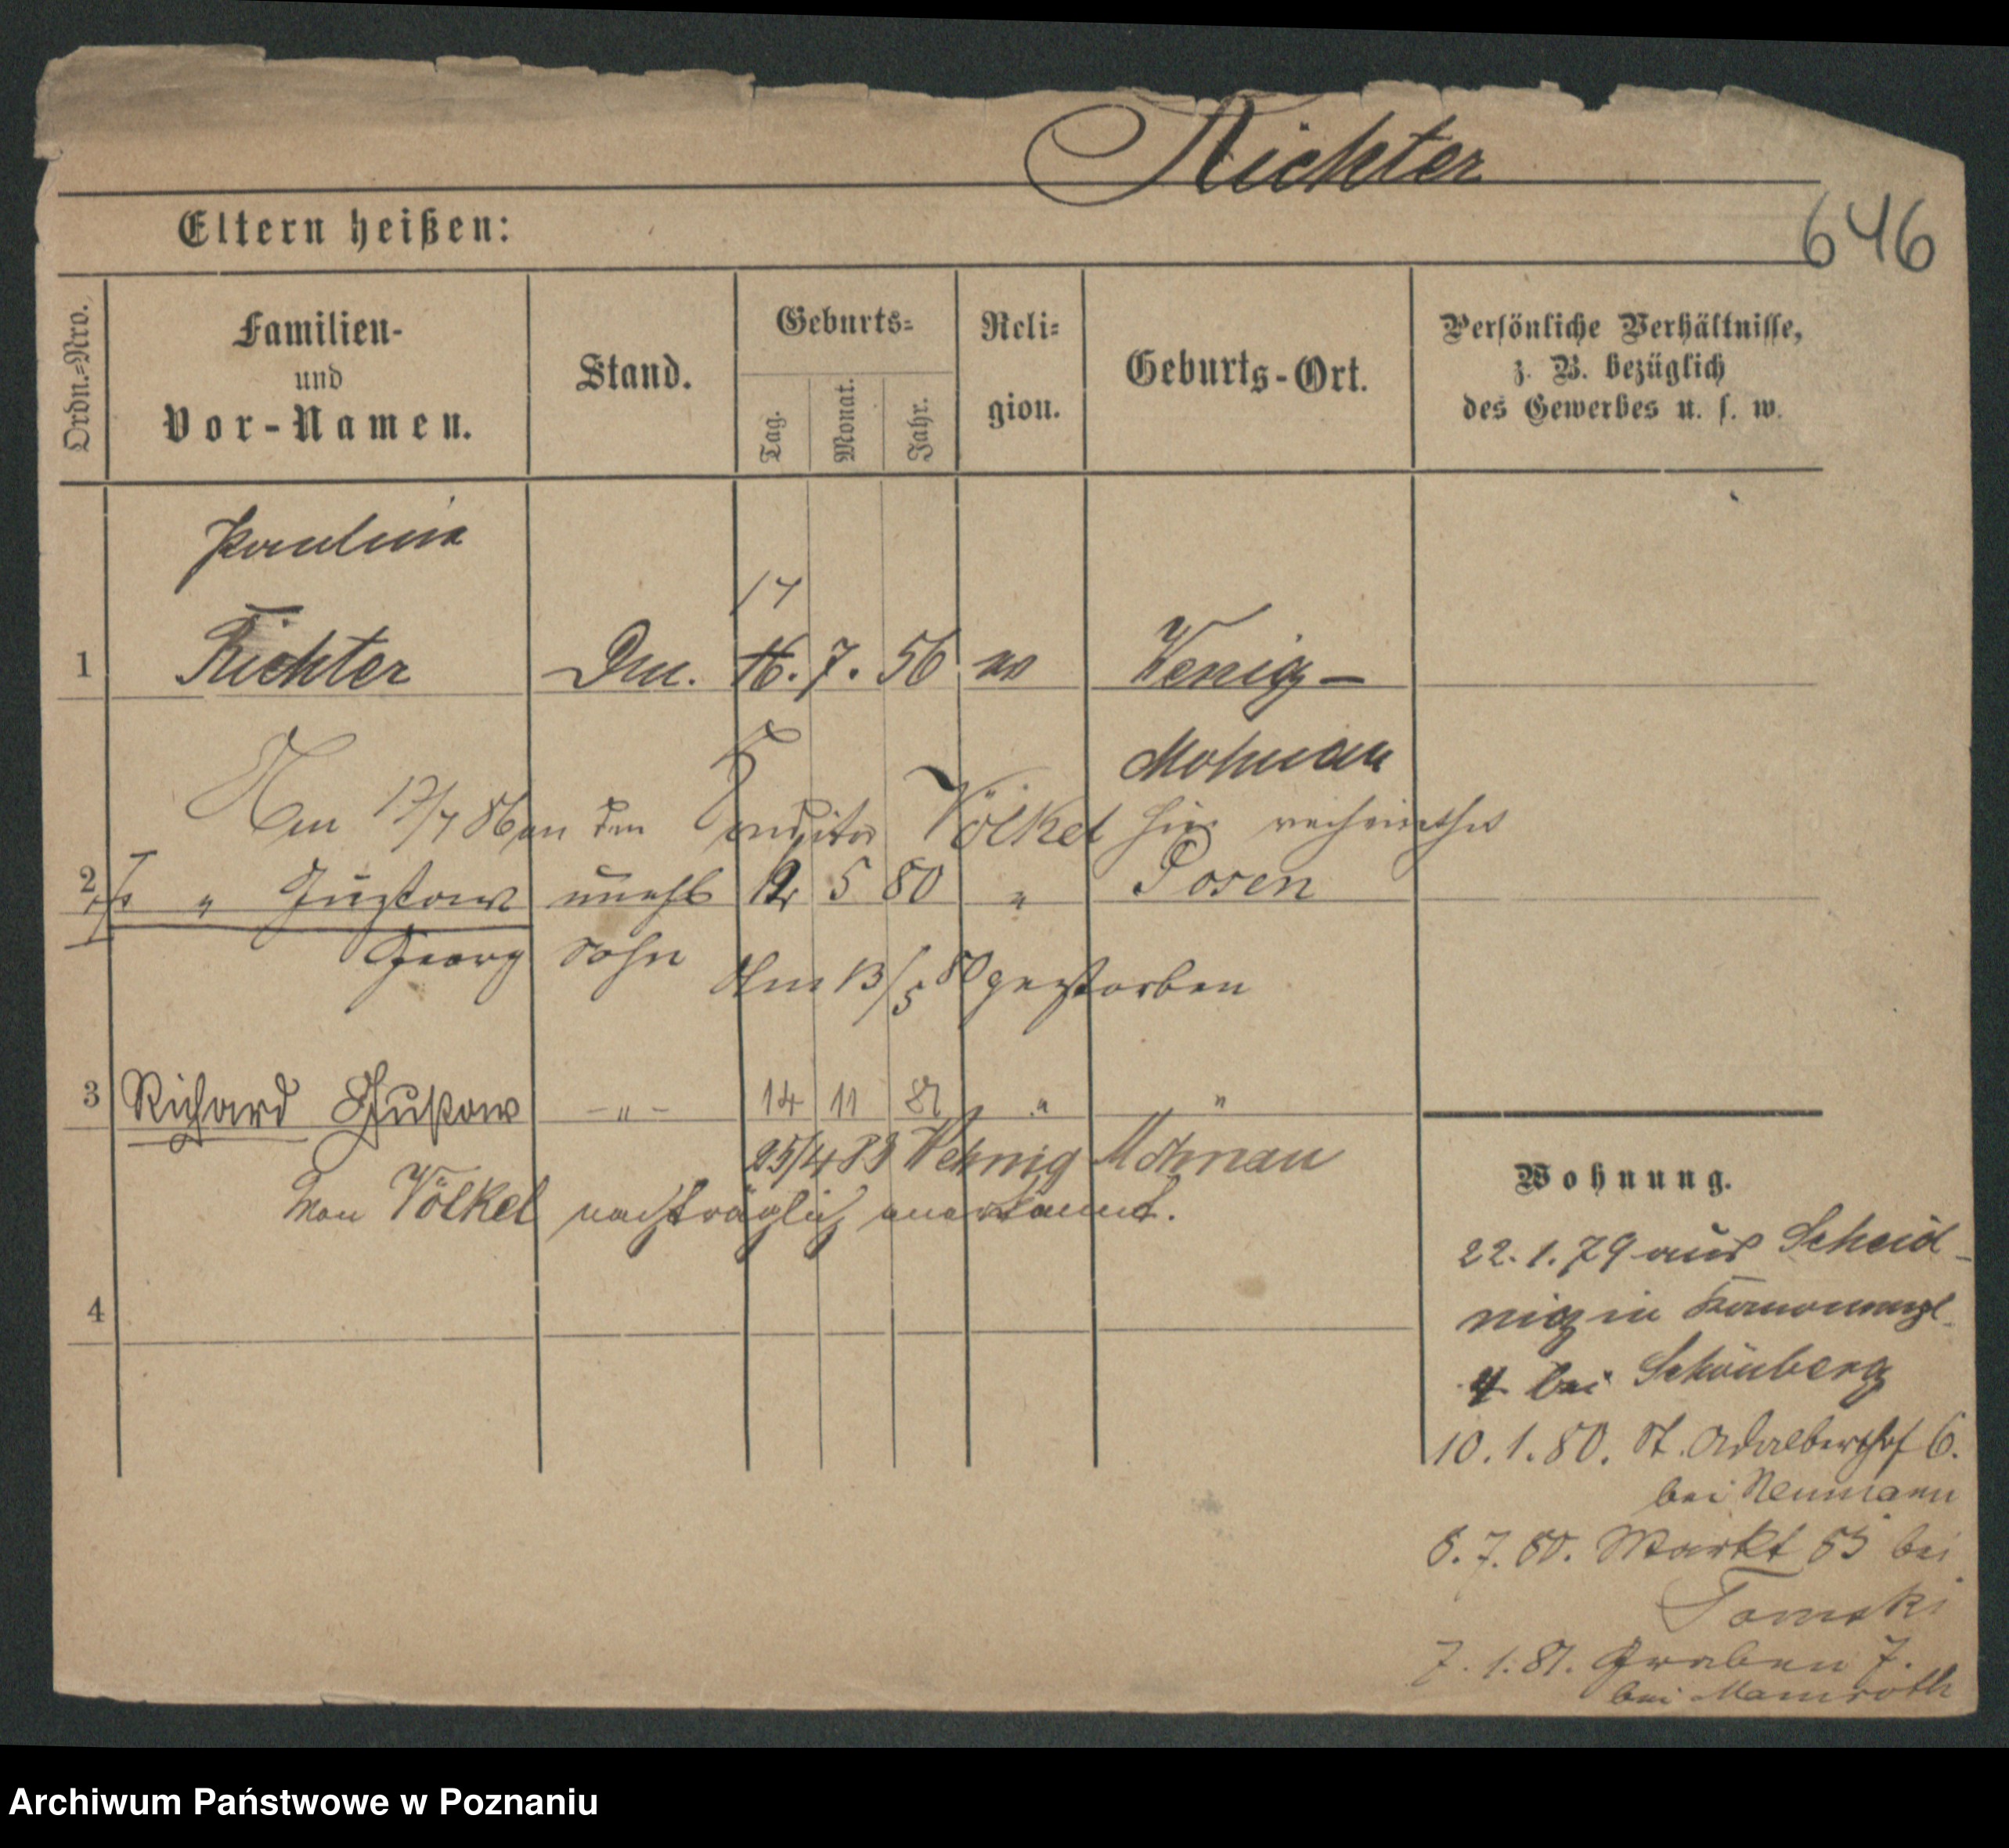 Richter
646
Eltern heißen:
Ordn.=Nro.
Familien-
und
Vor-Namen.
Stand.
Geburts=
Tag.
Monat.
Jahr.
Reli=
gion.
Geburts-Ort.
Persönliche Verhältnisse,
z. B. bezüglich
des Gewerbes u. s. w.
Paulina
17
1 Richter 16. 7. 56 Wenig-
Mohnau
Am 17/7 86 an den Conditor Völkel hier verheirathet
2 " Gustaw unehl 12 5 80 " Posen
Georg Sohn
Am 13/5 80 gestorben
3 Richard Gustaw -"- 14 11 81 " "
25/4 83 Wehnig Mohnau
von Völkel nachträglich anerkannt.
4
Wohnung.
22.1.79 aus Scheid-
nig in
4 bei Schönberg
10.1.80. St. Adalbertstr 6.
bei Neumann
8.7.80. Markt 55 bei
Tomski
7.1.81. Graben 7.
bei Mamroth
Archiwum Państwowe w Poznaniu